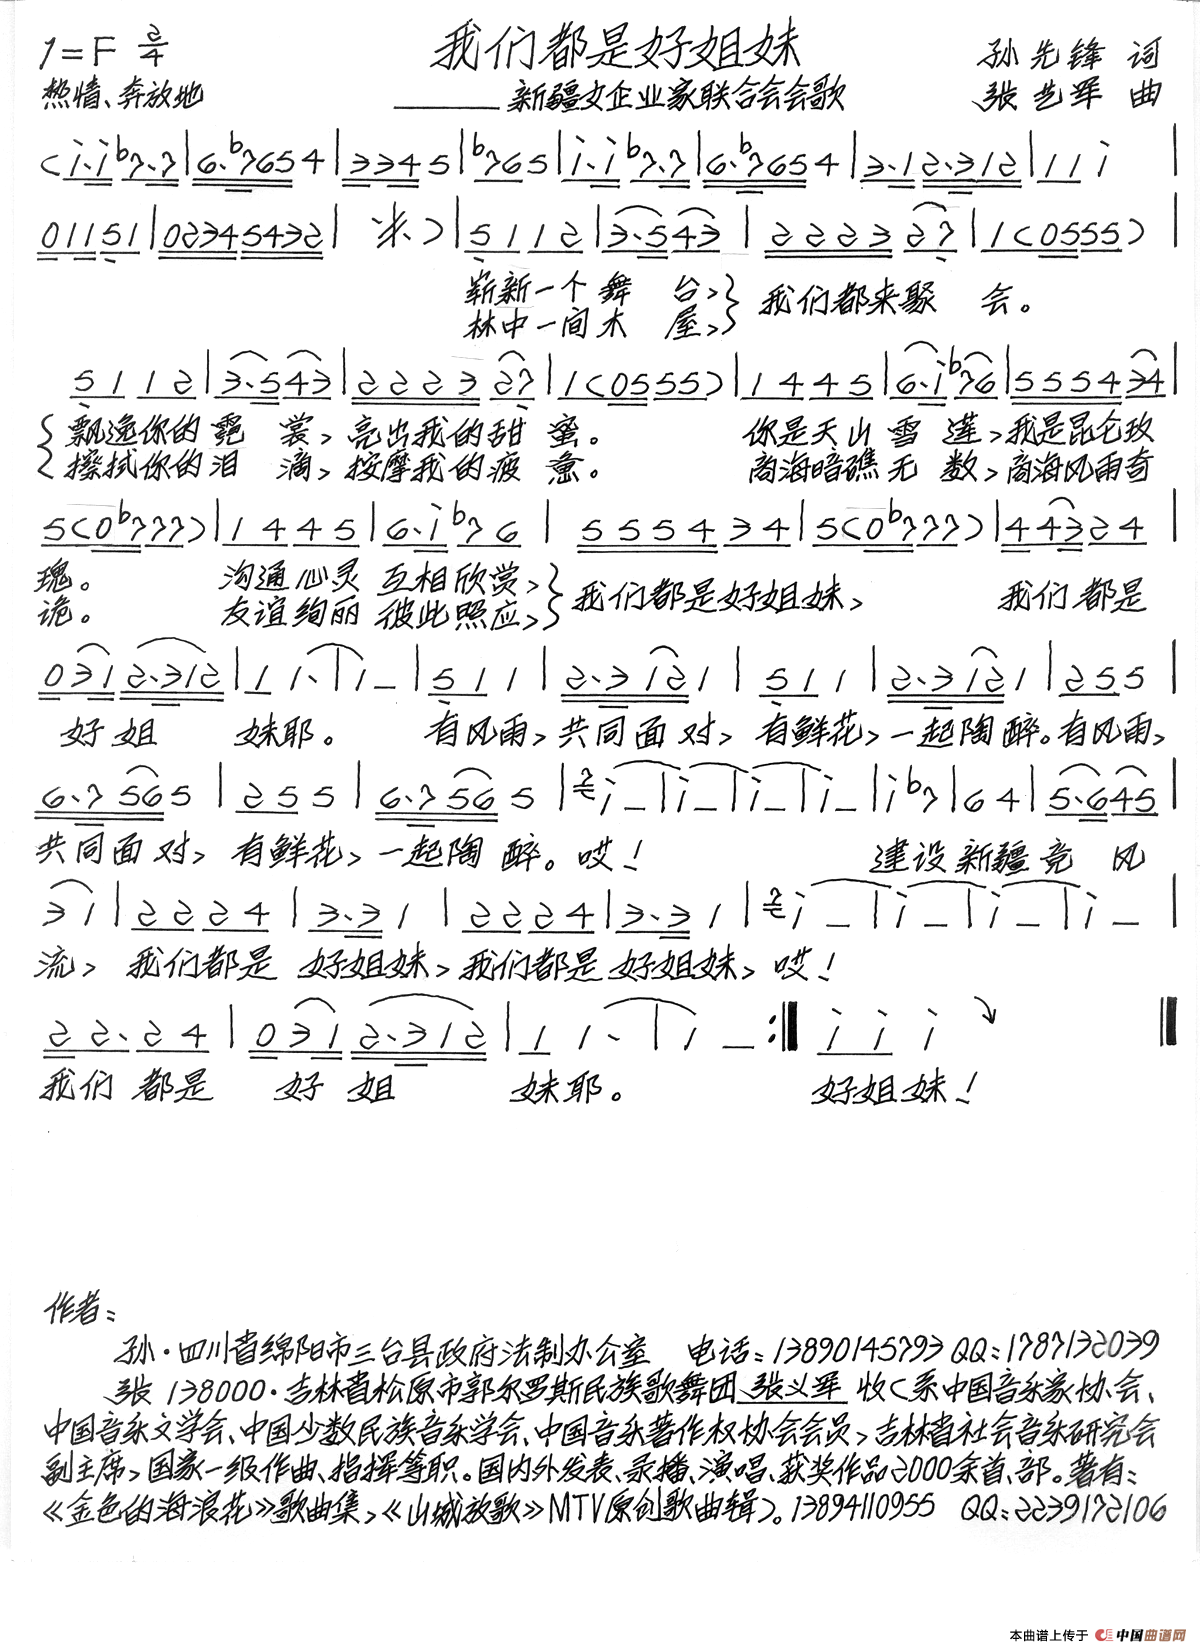 1=F 2/4 我们都是好姐妹 孙先锋 词
热情、奔放地 ———新疆女企业家联合会会歌 张艺军 曲
(i·i b7·7|6·b7654|3345|b765|i·i b7·7|6·b7654|3·12·312|11i|
01151|02345432| 米)|5112|3·543|222327|1(0555)|
崭新一个舞 台,
林中一间木 屋, 我们都来聚 会。
5112|3·543|222327|1(0555)|1445|6·i b76|555434|
飘逸你的霓 裳, 亮出我的甜 蜜。 你是天山雪 莲, 我是昆仑玫
擦拭你的泪 滴, 按摩我的疲 惫。 商海暗礁无 数, 商海风雨奇
5(0b777)|1445|6·i b76|555434|5(0b777)|44324|
瑰。 沟通心灵 互相欣赏,
诡。 友谊绚丽 彼此照应, 我们都是好姐妹, 我们都是
0312·312|11·|1—|511|2·3121|511|2·3121|255|
好姐 妹耶。 有风雨, 共同面对, 有鲜花, 一起陶醉。有风雨,
6·7565|255|6·7565|i—|i—|i—|i—|i b7|64|5·645|
共同面对, 有鲜花, 一起陶醉。哎! 建设新疆竞 风
31|2224|3·31|2224|3·31|i—|i—|i—|i—|
流, 我们都是 好姐妹, 我们都是 好姐妹, 哎!
22·24|0312·312|11·|1—:|iii|
我们 都是 好 姐 妹耶。 好姐妹!
作者:
孙·四川省绵阳市三台县政府法制办公室 电话:13890145793 QQ:1787132039
张 138000·吉林省松原市郭尔罗斯民族歌舞团 张义军 收(系中国音乐家协会、
中国音乐文学会、中国少数民族音乐学会、中国音乐著作权协会会员, 吉林省社会音乐研究会
副主席, 国家一级作曲、指挥等职。国内外发表、录播、演唱、获奖作品2000余首、部。著有:
《金色的海浪花》歌曲集,《山城放歌》MTV原创歌曲辑)。13894110955 QQ:2239172106
本曲谱上传于 中国曲谱网